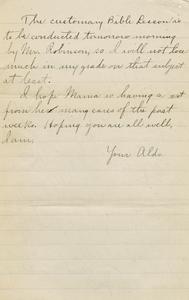 The customary Bible Lesson is
to be conducted tomorrow morning
by Mr. Robinson, so I will not lose
much in my grade on that subject
at least.
I hope Mama is having a rest
from her many cares of the past
weeks. Hoping you are all well,
I am,
Your Aldo